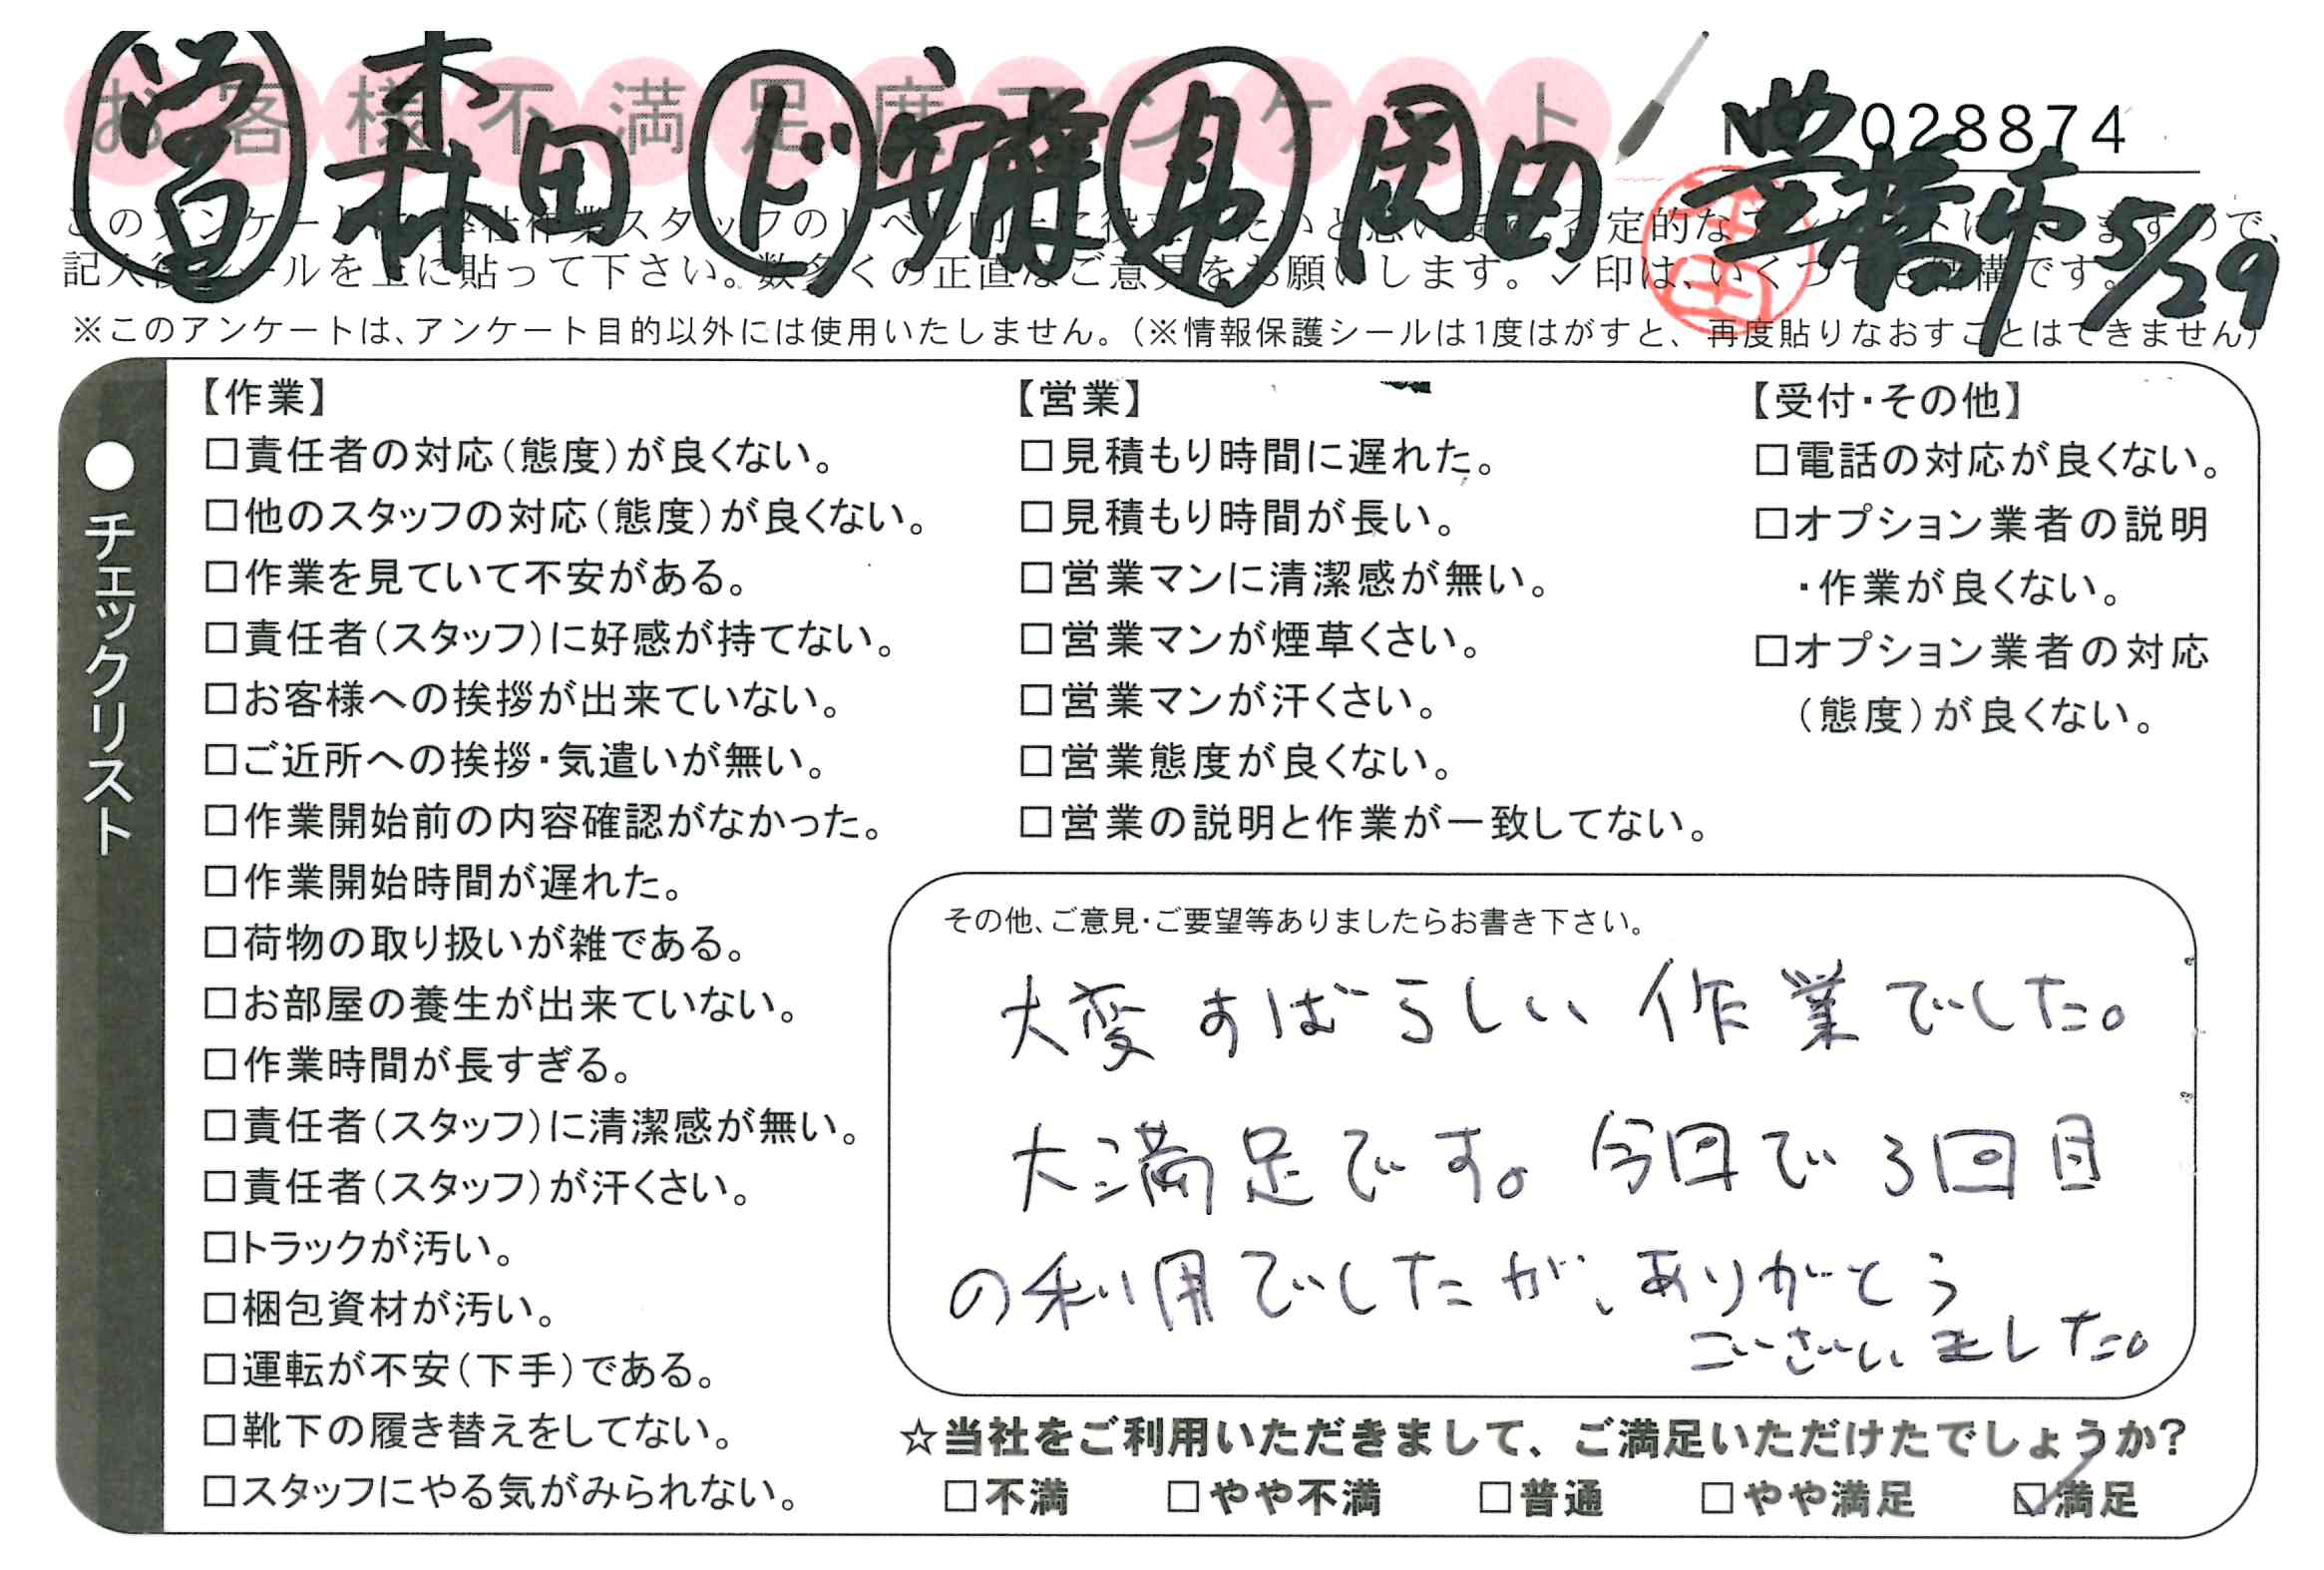 お客様不満足度アンケート
営 森田 ド 安藤 助 岡田 豊橋市 5/29
028874
記入後シールを上に貼って下さい。数多くの正直なご意見をお願いします。✓印は、いくつでも結構です。
※このアンケートは、アンケート目的以外には使用いたしません。(※情報保護シールは1度はがすと、再度貼りなおすことはできません)
●チェックリスト
【作業】
□責任者の対応(態度)が良くない。
□他のスタッフの対応(態度)が良くない。
□作業を見ていて不安がある。
□責任者(スタッフ)に好感が持てない。
□お客様への挨拶が出来ていない。
□ご近所への挨拶・気遣いが無い。
□作業開始前の内容確認がなかった。
□作業開始時間が遅れた。
□荷物の取り扱いが雑である。
□お部屋の養生が出来ていない。
□作業時間が長すぎる。
□責任者(スタッフ)に清潔感が無い。
□責任者(スタッフ)が汗くさい。
□トラックが汚い。
□梱包資材が汚い。
□運転が不安(下手)である。
□靴下の履き替えをしてない。
□スタッフにやる気がみられない。
【営業】
□見積もり時間に遅れた。
□見積もり時間が長い。
□営業マンに清潔感が無い。
□営業マンが煙草くさい。
□営業マンが汗くさい。
□営業態度が良くない。
□営業の説明と作業が一致してない。
【受付・その他】
□電話の対応が良くない。
□オプション業者の説明
・作業が良くない。
□オプション業者の対応
(態度)が良くない。
その他、ご意見・ご要望等ありましたらお書き下さい。
大変すばらしい作業でした。
大満足です。今回で3回目
の利用でしたが、ありがとう
ございました。
☆当社をご利用いただきまして、ご満足いただけたでしょうか?
□不満 □やや不満 □普通 □やや満足 ☑満足